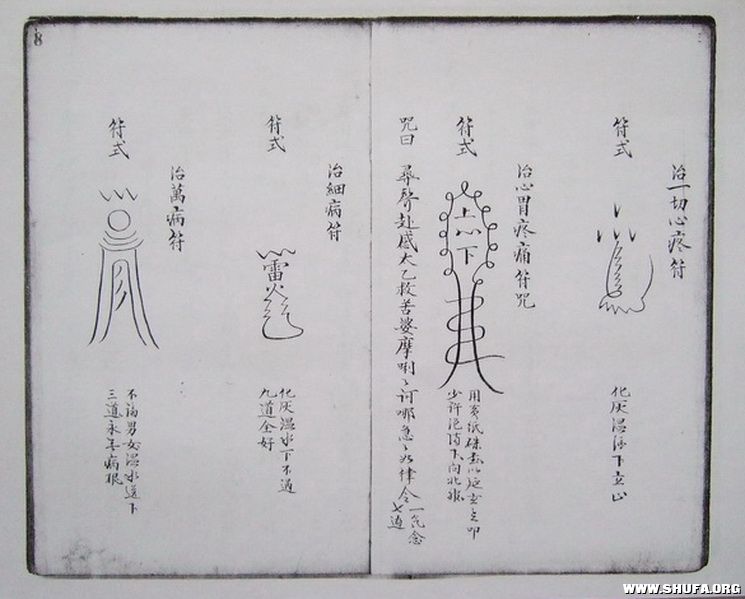 治一切心疼符
符式
化灰温湯下立止
治心胃疼痛符咒
符式
上心下
用黄紙硃
少許
下向北
咒曰
尋聲赴感太乙救苦婆摩唎〻訶哪急〻如律令
一气念
七遍
治細病符
符式
雷火
化灰温水下不過
九道全好
治萬病符
符式
不論男女温水送下
三道永無病根
8
WWW.SHUFA.ORG